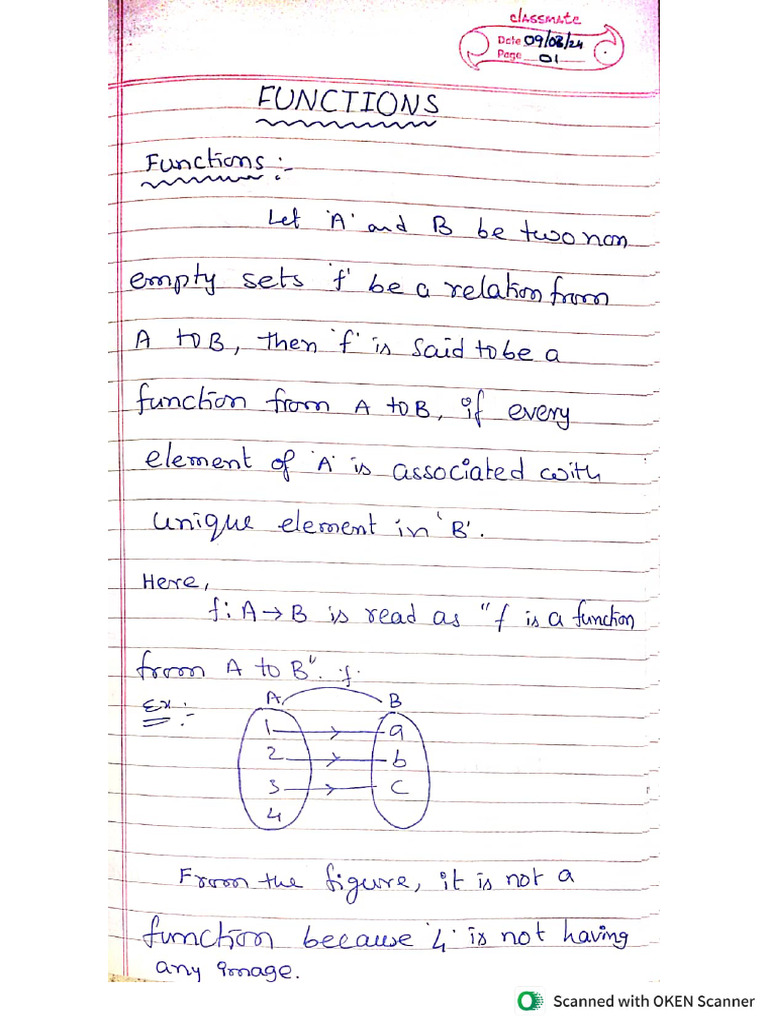 classmate
Date 09/08/24
Page 01
FUNCTIONS
Functions :-
Let 'A' and B be two non
empty sets 'f' be a relation from
A to B, then 'f' is said to be a
function from A to B, if every
element of 'A' is associated with
unique element in 'B'.
Here,
f: A → B is read as "f is a function
from A to B". f.
Ex :-
A B
1 a
2 b
3 c
4
From the figure, it is not a
function because '4' is not having
any image.
Scanned with OKEN Scanner